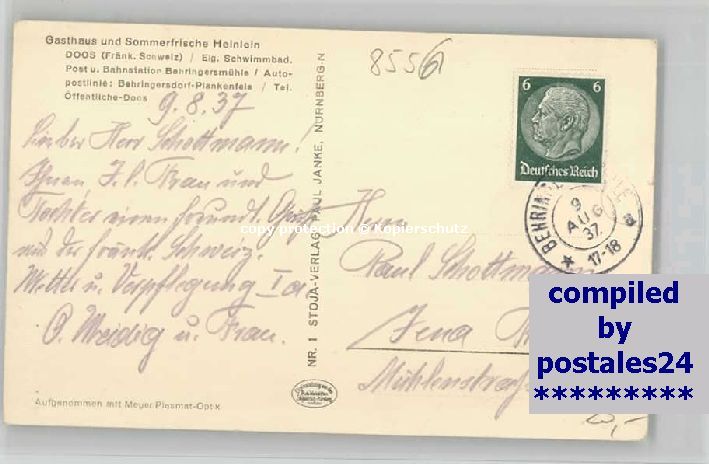 Gasthaus und Sommerfrische Heinlein
DOOS (Fränk. Schweiz) / Eig. Schwimmbad.
Post u. Bahnstation Behringersmühle / Auto-
postlinie: Behringersdorf-Plankenfels / Tel.
Öffentliche-Doos
8556
9.8.37
Lieber Herr Schottmann!
Ihnen, I. l. Frau und
Tochter einen freundl. Gruß
aus der fränk. Schweiz.
Wetter u. Verpflegung Ia.
O. Weidig u. Frau.
Aufgenommen mit Meyer Plasmat-Optik
NR. 1 STOJA-VERLAG PAUL JANKE, NÜRNBERG N
6 6
Deutsches Reich
9
AUG
37
17-18
Herrn
Paul Schottmann
Jena
Mühlenstraße
copy protection Kopierschutz
compiled
by
postales24
*********